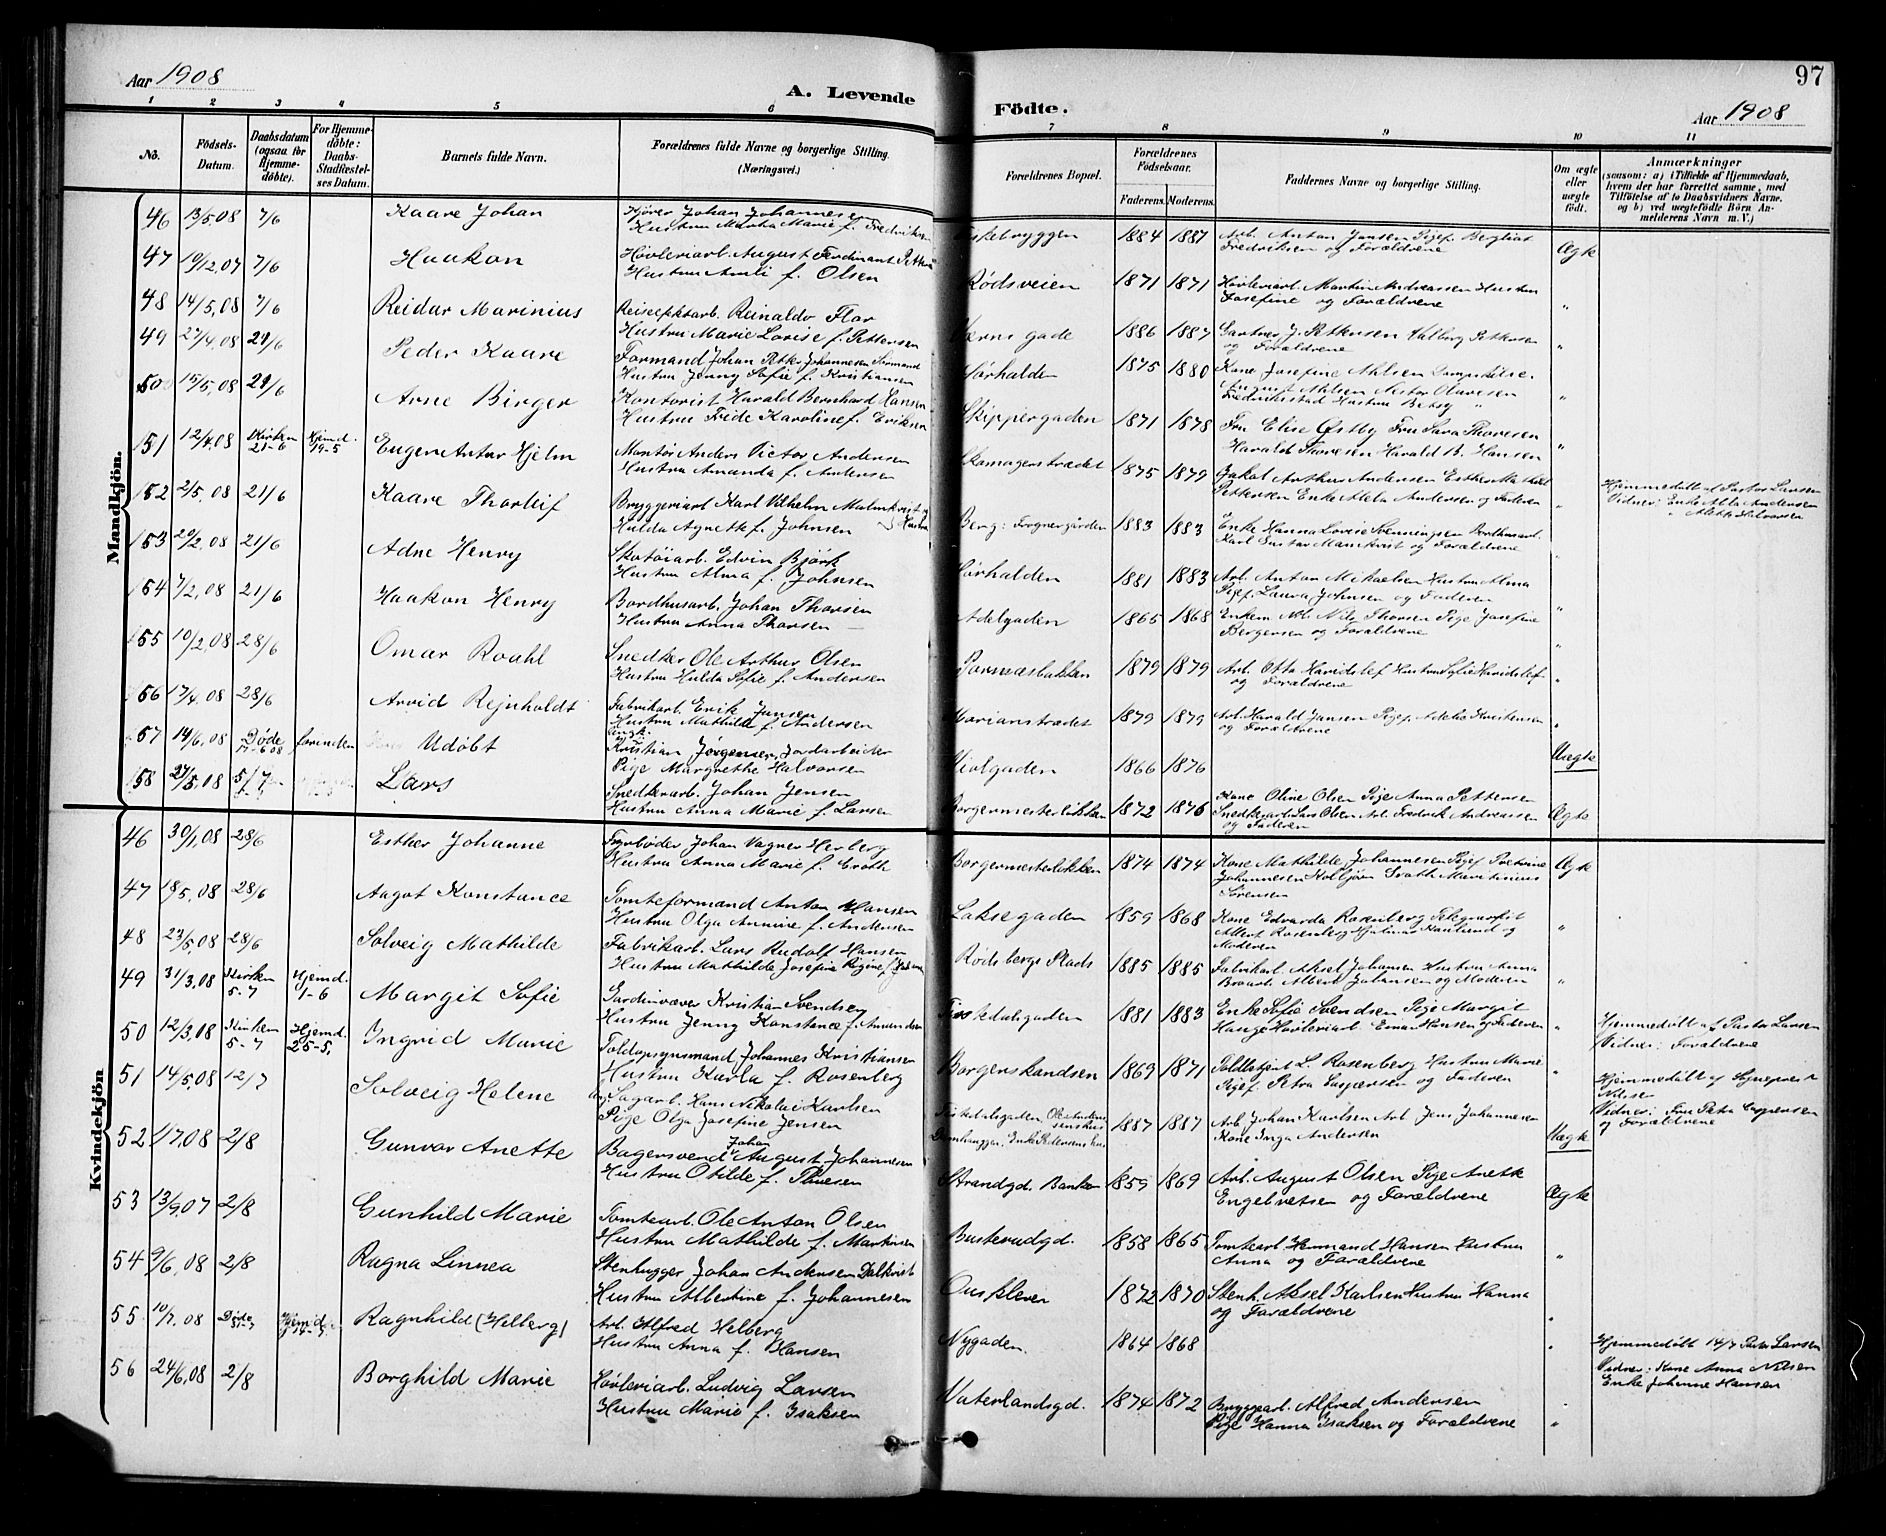 Aar 1908
A. Levende
Födte.
97
Aar 1908
1 2 3 4 5 6 7 8 9 10 11
No.
Födsels-Datum.
Daabsdatum (ogsaa for Hjemmedöbte).
For Hjemmedöbte: Daabs-Stadfæstelses Datum.
Barnets fulde Navn.
Forældrenes fulde Navne og borgerlige Stilling.
(Næringsvei.)
Forældrenes Bopæl.
Forældrenes Födselsaar.
Faderens. Moderens.
Faddernes Navne og borgerlige Stilling.
Om ægte eller uægte födt.
Anmærkninger
(saasom: a) i Tilfælde af Hjemmedaab, hvem der har forrettet samme, med Tilföielse af to Daabsvidners Navne, og b) ved uægtefödte Börn Anmelderens Navn m. V.)
Mandkjön.
46 13/5,08 7/6 Kaare Johan Kjører Johan Johannesen
Hustru Martha Marie f. Fredriksen
Fiskebryggen 1884 1887 Arb. Anton Jansen Pigef. Bergliot
Fredriksen og Forældrene Ægte
47 19/12,07 7/6 Haakon Høvleriarb. August Ferdinant Petters
Hustru Amli f. Olsen
Rødsveien 1871 1871 Høvleriarb. Martin Andreassen Hustru
Josefine og Forældrene "
48 14/5,08 7/6 Reidar Marinius Reinaldo Flor
Hustru Marie Lovise f. Pettersen
Værns gade 1886 1887 Gartner J. Pettersen Valborg Pettersen
og Forældrene "
49 27/4,08 21/6 Peder Kaare Formand Johan Petter Johannesen
Hustru Jenny Sofie f. Kristiansen
Sørhalden 1875 1880 Kone Josefine Nilsen
August Nilsen Nestor Olavesen
Fredrikstad Hustru Betsy "
50 15/5,08 21/6 Arne Birger Kontorist Harald Bernhard Hansen
Hustru Fride Karoline f. Eriksen
Skippergaden 1871 1878 Fru Elise Østby Fru Sara Thoresen
Harald Thoresen Harald B. Hansen "
151 12/4,08 Kirken 21-6 Hjemd. 19-5 Eugen Antar Hjelm Montør Anders Victor Andersen
Hustru Amanda f. Andersen
Skomagerstrædet 1875 1879 Jakob Arthur Andersen Esther
Pettersen Enke Alda Andersen og Faderen "
Hjemmedøbt af Pastor Larsen
Vidner: Enke Alda Andersen
152 2/5,08 21/6 Kaare Thorleif Bryggeriarb. Karl Vilhelm Malmkvist og
Hulda Agnete f. Johnsen Hustru
Berg: Frognergården 1883 1883 Enke Hanna Lovise Svenningsen Bordhusarb.
Karl Gustav Malmkvist og Forældrene "
153 20/2,08 21/6 Adne Henry Skotøiarb. Edvin Bjørk
Hustru Alma f. Johnsen
Sørhalden 1881 1883 Arb. Anton Mikaelsen Hustru Alma
Pigef. Laura Johnsen og Faderen "
154 7/2,08 21/6 Haakon Henry Bordhusarb. Johan Thorsen
Hustru Anna Thorsen
Adelgaden 1865 1868 Enkem. Arb. Nils Thorsen Pige Josefine
Bergersen og Forældrene "
155 10/2,08 28/6 Omar Roahl Snedker Ole Arthur Olsen
Hustru Hulda Sofie f. Andersen
1879 1879 Arb. Otto Haridslef Hustru Sylie Haridslef
og Forældrene "
156 17/4,08 28/6 Arvid Rejnholdt Fabrikarb. Erik Jansen
Hustru Mathilde f. Andersen
Marianstrædet 1879 1879 Arb. Harald Jansen Pigef. Adele Kristensen
og Forældrene "
157 14/6,08 Døde 17-6 08 forinden Udøbt Kristian Jørgensen, Jordarbeider
Pige Margrethe Halvorsen
Violgaden 1866 1876 Uægte
158 27/5,08 5/7 Lars Snedkerarb. Johan Jensen
Hustru Anna Marie f. Larsen
Borgermesterløkken 1872 1876 Kone Oline Olsen Pige Anna Pettersen
Snedkerarb. Lars Olsen Arb. Fredrik Andreassen
og Faderen Ægte
Kvindekjön
46 30/1,08 28/6 Esther Johanne Fyrbøder Johan Vagner Herberg
Hustru Anna Marie f. Groth
Borgermesterløkken 1874 1874 Kone Mathilde Johannesen Pigef. Petrine
Johannesen Kolbjørn Groth Maritinius
Sørensen Ægte
47 18/5,08 28/6 Aagot Konstance Tomteformand Anton Hansen
Hustru Olga Annine f. Andersen
Laksegaden 1859 1868 Kone Edvarda Rosenberg Telegrafist
Albert Rosenberg Hjalmar og
Moderen "
48 23/5,08 28/6 Solveig Mathilde Fabrikarb. Lars Rudolf Hansen
Hustru Mathilde Josefine Regine f.
Rødsbergs Plads 1885 1885 Fabrikarb. Aksel Johansen Hustru Anna
Albert Johansen og Moderen "
49 31/3,08 Kirken 5-7 Hjemd. 1-6 Margit Sofie Gardinvæver Kristian Svendsen
Hustru Jenny Konstance f. Amundsen
Fiskedalsgaden 1881 1883 Enke Sofie Svendsen Pige Margit
Hauge Høvleriarb. Einar Hansen og Faderen "
Hjemmedøbt af Pastor Larsen
Vidner: Forældrene
50 12/3,08 Kirken 5-7 Hjemd. 25-5, Ingrid Marie Toldopsynsmand Johannes Kristiansen
Hustru Karla f. Rosenberg
Borgerskandsen 1869 1871 Toldbetjent L. Rosenberg Hustru Marie
Pigef. Petra Caspersen og Faderen "
Hjemmedøbt af Sognepræst
Nilsen
Vidner: Fru Petra Caspersen
og Forældrene
51 14/5,08 12/7 Solveig Helene Ug Sagarb. Hans Nikolai Karlsen
Pige Olga Josefine Jensen
Fiskedalsgaden, Ole Andersenshus
Damhaugen, Enke Pedersens hus 1887 1887 Arb. Johan Karlsen Arb. Jens Johannesen
Kone Inga Andersen Uægte
52 1/7,08 2/8 Gunvor Anette Bagersvend Johan August Johannesen
Hustru Otilde f. Thoresen
Strandgd. Banken 1859 1869 Arb. August Olsen Pige Anette
Engelvetsen og Forældrene Ægte
53 13/9,07 2/8 Gunhild Marie Tomtearb. Ole Anton Olsen
Hustru Mathilde f. Martinsen
Busterudgd. 1858 1865 Tomtearb. Hermand Hansen Hustru
Anna og Forældrene "
54 9/6,08 2/8 Ragna Linnea Stenhugger Johan Andersen Dalkvist
Hustru Albertine f. Johannesen
Ouskleven 1872 1870 Stenh. Aksel Karlsen Hustru Hanna
og Forældrene "
55 10/7,08 Døde 31-7 Hjemd. 14-7 Ragnhild (Helberg) Arb. Alfred Helberg
Hustru Anna f. Hansen
Nygaden. 1864 1868 "
Hjemmedøbt 14/7 Pastor Larsen
Vidner: Kone Anna Nilsen
Enke Johanne Hansen
56 24/6,08 2/8 Borghild Marie Høvleriarb. Ludvig Larsen
Hustru Marie f. Isaksen
Vaterlandsgd. 1874 1872 Bryggearb. Alfred Andersen
Pige Hanna Isaksen og Forældrene "